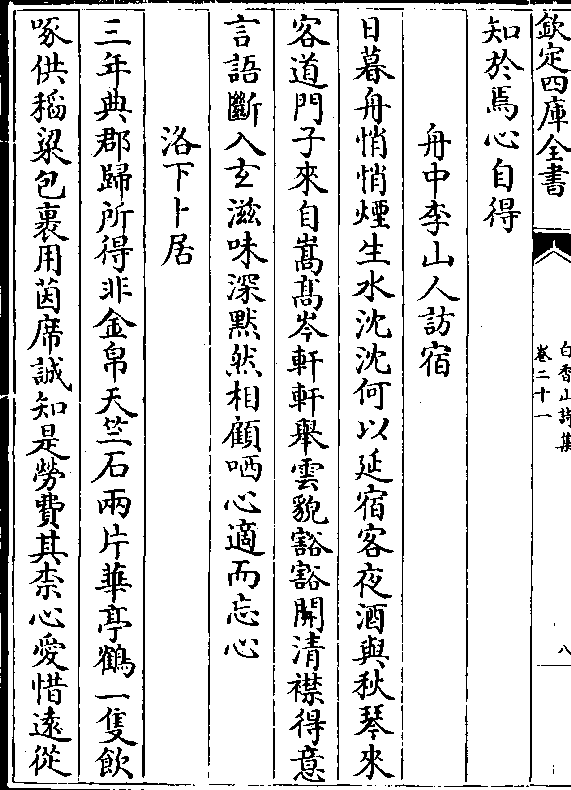 欽定四庫全書
白香山詩集
卷二十一
八
知於焉心自得
舟中李山人訪宿
日暮舟悄悄煙生水沈沈何以延宿客夜酒與秋琴來
客道門子來自嵩髙岑軒軒舉雲貌豁豁開清襟得意
言語斷入玄滋味深黙然相顧哂心適而忘心
洛下卜居
三年典郡歸所得非金帛天竺石兩片華亭鶴一隻飲
啄供稻粱包裹用茵席誠知是勞費其柰心愛惜遠從